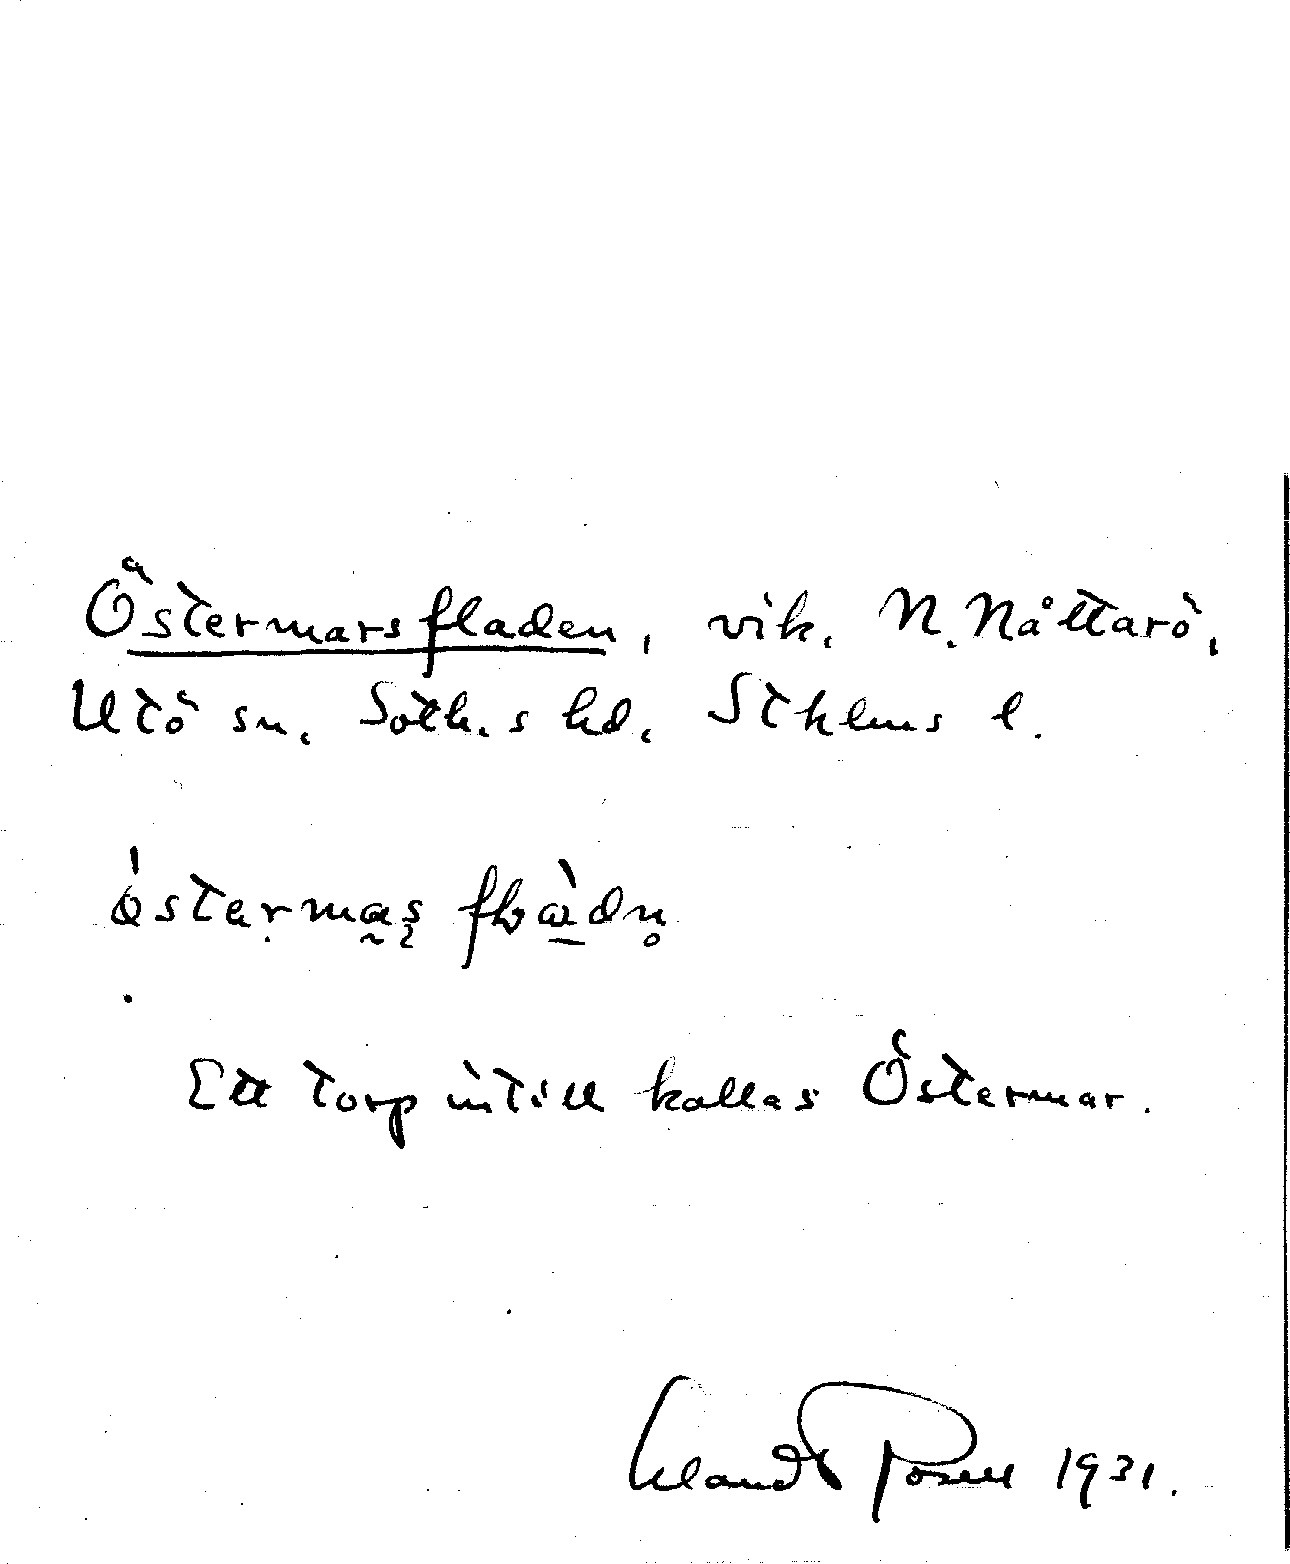 Östermarsfladen, vik. N. Nåttarö,
Utö sn. Soth.s hd. Sthlms l.
östarmas fladn
Ett torp intill kallas Östermar.
Erland Rosell 1931.